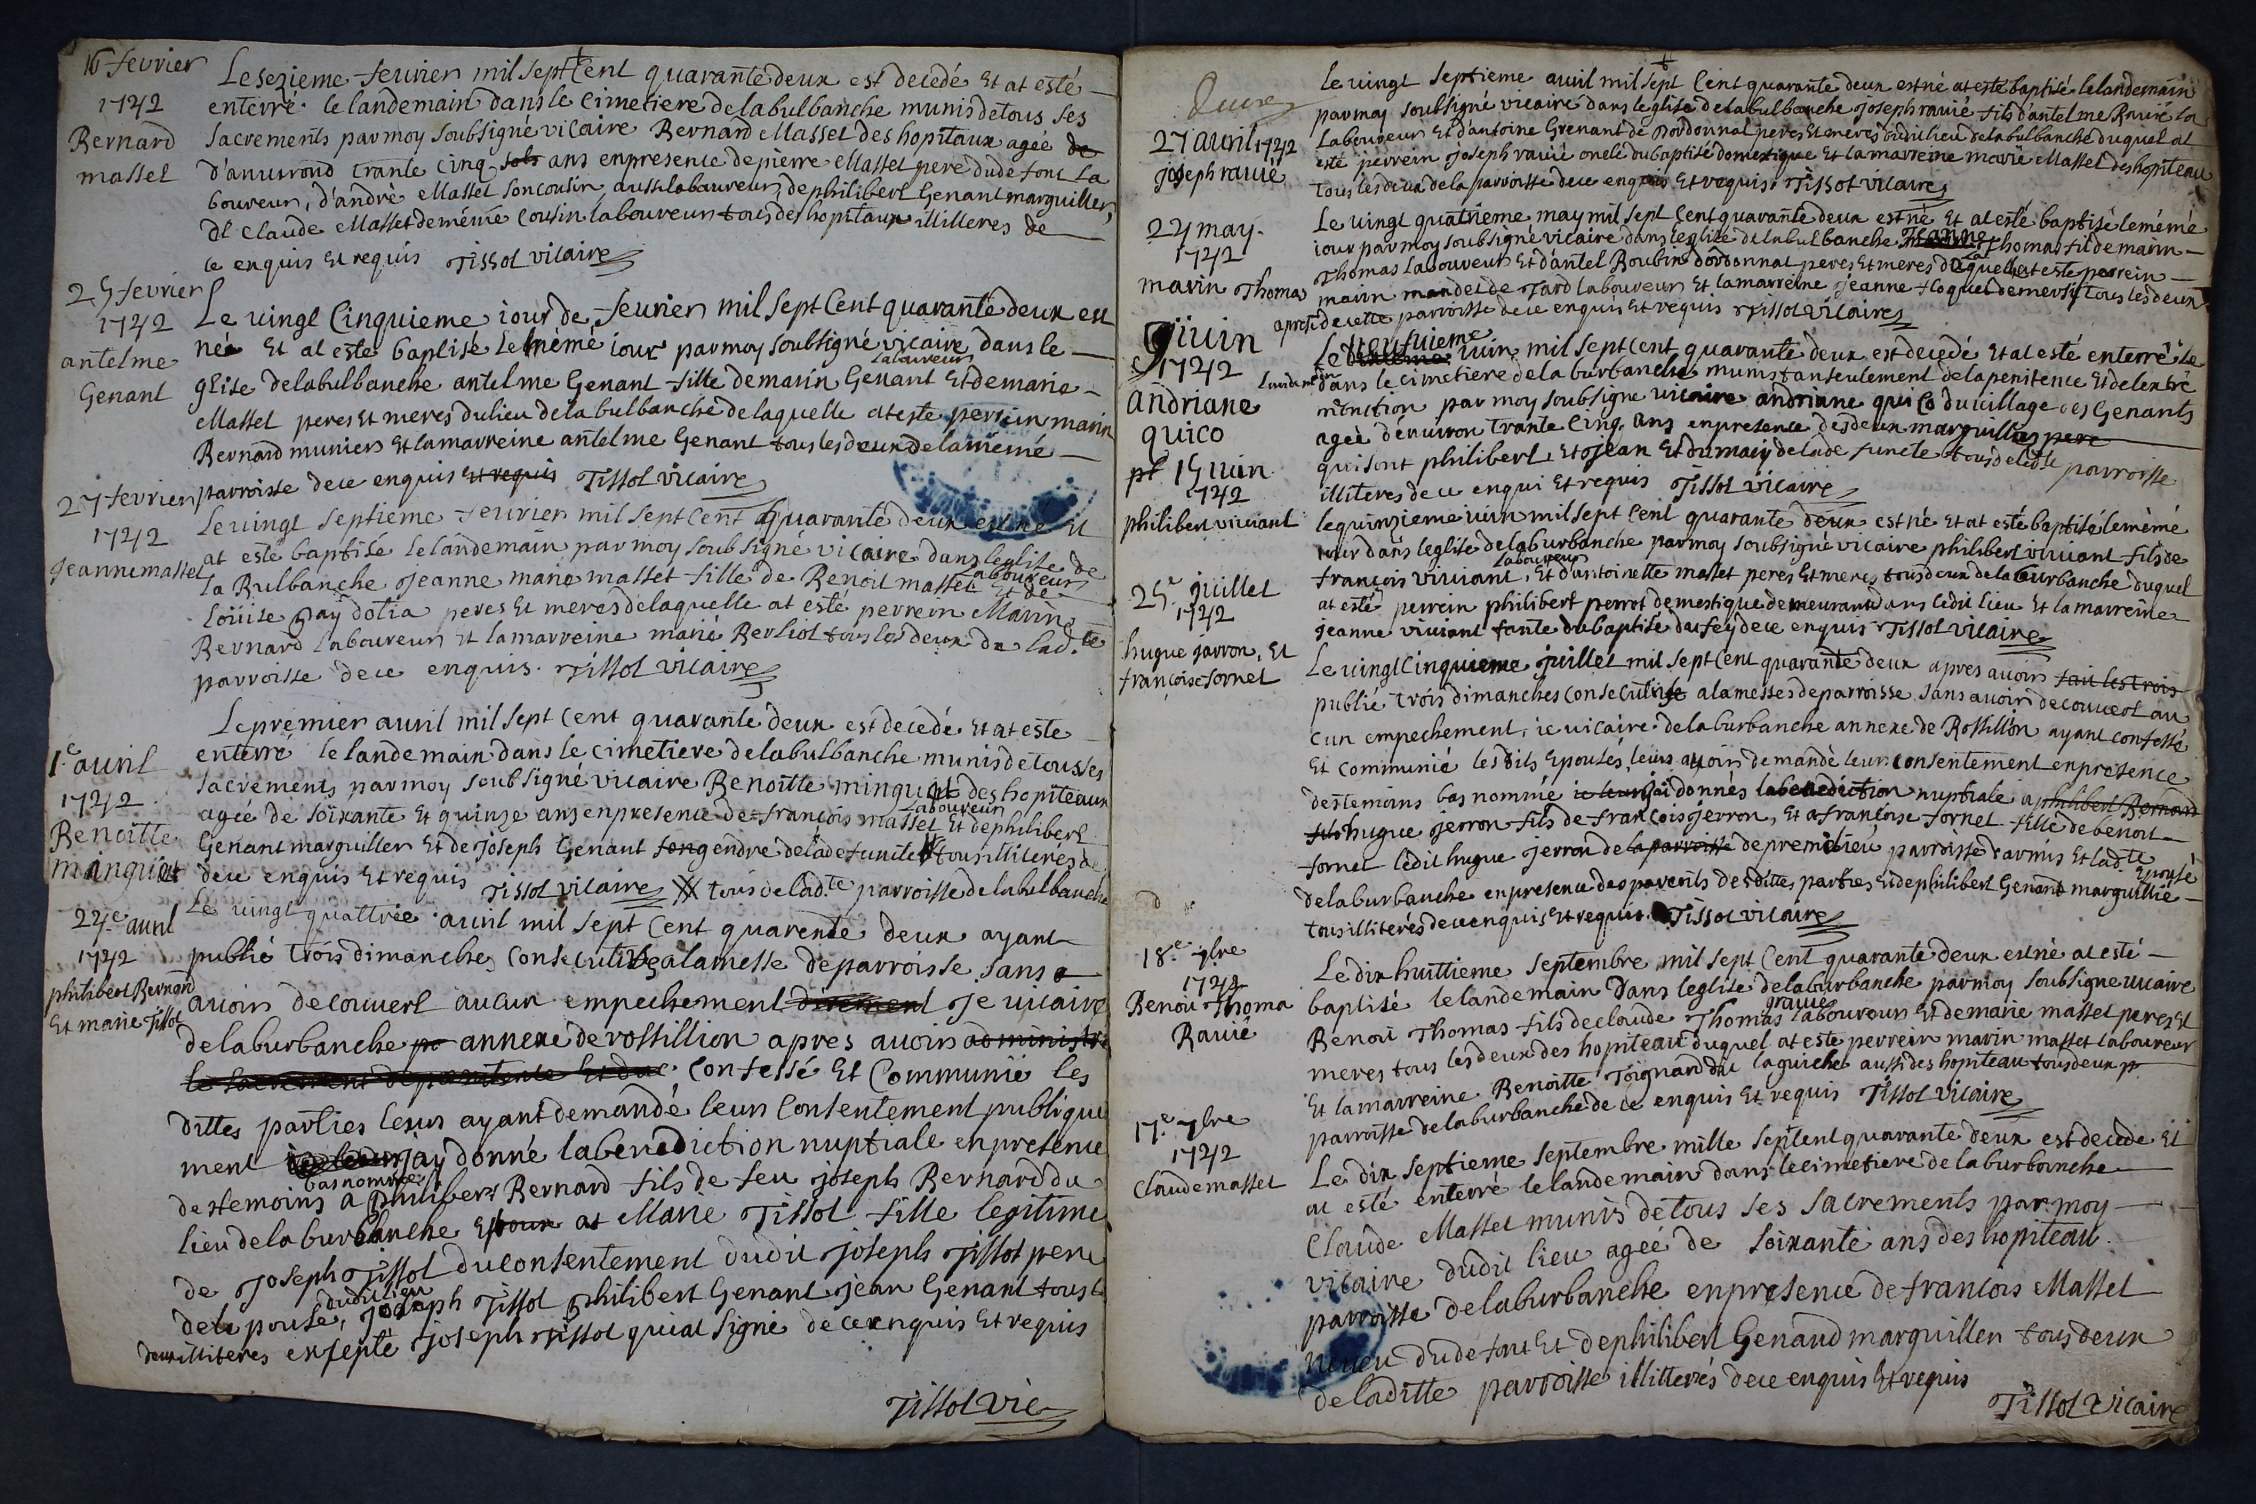 16 fevrier
1742
Bernard
massel
Le sezieme fevrier mil sept Cent quarante deux est decedé Et at esté
enterré le landemain dans le Cimetiere de la bulbanche munis de tous ses
sacrements par moy soubsigné vicaire Bernard Massel des hopitaux ageé de
d'anvirond trante cinq sols ans en presence de pierre Massel pere du defont La
boureur, d'andrè Massel son cousin aussi laboureur, de philibert Genant marguiller,
Et Claude Massel de mémé Cousin laboureur tous des hopitaux illilleres de
ce enquis Et requis Tissol vicaire
25 fevrier
1742
antelme
Genant
Le vingt Cinquieme iour de fevrier mil sept Cent quarante deux est
neé Et at esté baptisé le mémé iour par moy soubsigné vicaire dans le
laboureur
glise de la bulbanche antelme Genant fille de marin Genant Et de marie
Massel peres Et meres du lieu de la bulbanche de laquelle at esté perrein marin
Bernard muniers Et la marreine antelme Genant tous les deux de la mémé
parroisse de ce enquis Et requis Tissol vicaire
27 fevrier
1742
Jeanne massel
Le vingt septieme fevrier mil sept Cent quarante deux est né Et
at esté baptisé le landemain par moy soubsigné vicaire dans l'eglise de
la Bulbanche Jeanne marie massel fille de Benoit massel laboureur Et de
Loüise pay dotia peres Et meres de laquelle at esté perrein Marin
Bernard Laboureur Et la marreine marie Berliot tous les deux de lad.te
parroisse de ce enquis. Tissol vicaire
1e avril
1742
Benoitte
minguet
Le premier avril mil sept Cent quarante deux est decedé Et at esté
enterré le landemain dans le Cimetiere de la bulbanche munis de tous ses
sacrements par moy soubsigné vicaire Benoitte minguet des hopiteaux
laboureur
ageé de soixante Et quinze ans en presence de françois massel Et de philibert
Genant marguiller Et de Joseph Genant son gendre de la defuncte tous illiterés de
de ce enquis Et requis Tissol vicaire tous de lad.te parroisse de la bulbanche
24e avril
1742
philibert Bernard
Et marie Tissol
Le vingt quattrée avril mil sept Cent quarente deux ayant
publié trois dimanches Consecutives a la messe de parroisse sans
avoir decouvert aucun empechement diriment Je vicaire
de la burbanche annexe de rossillion apres avoir administré
le sacrement de penitence Et du Confessé Et Communié les
dittes parties leur ayant demandé leur Consentement publique
ment je leur jay donné la benediction nuptiale en presence
bas nommés
des temoins a philibert Bernard fils de feu Joseph Bernard du
lieu de la burbanche Epoux at Marie Tissol fille legitime
de Joseph Tissol du consentement dudit Joseph Tissot pere
dudit lieu
de le pouse, Joseph Tissol philibert Genant Jean Genant tous
deux illiteres exsepté Joseph Tissol qui at signé de ce enquis Et requis
Tissol vic
27 avril 1742
joseph ravié
le vingt septieme avril mil sept Cent quarante deux est né at esté baptisé le landemain
par moy soubsigné vicaire dans l'eglise de la bulbanche joseph ravié fils d'antelme Ravié La
Laboureur Et d'antoine Grenant de Dordonnal peres Et meres dudit lieu de la bulbanche duquel at
esté perrein Joseph ravié oncle du baptisé domestique Et la marreine marie Massel des hopiteau
tous les deux de la parroisse de ce enquis Et requis. Tissol vicaire
24 may
1742
marin Thomas
Le vingt quatrieme may mil sept Cent quarante deux est né Et at esté baptisé le mémé
iour par moy soubsigné vicaire dans l'eglise de la bulbanche Thomas fil de marin
Thomas Laboureur Et d'antel Roubin dordonnat peres Et meres duquel at esté perrein
marin mandet de Tard laboureur Et la marreine jeanne floquet demersy tous les deux
de cette parroisse de ce enquis Et requis Tissol vicaire
9 juin
1742
andriane
quico
Le neufvieme juin mil sept cent quarante deux est decedé Et at esté enterré le
landemain dans le cimetiere de la burbanche munis tanseulement de la penitence Et de lextré
monction par moy soubsigné vicaire andriane quico du village des Genants
ageè denviron trante Cinq ans en presence des deux marguilliers pere
qui sont philibert, Et Jean Et du mary de la de functe tous de la d.te parroisse
illiteres de ce enqui Et requis Tissol vicaire
15 juin
1742
philibert viviant
le quinzieme juin mil sept Cent quarante deux est né Et at esté baptisé le mémé
iour dans l'eglise de la burbanche par moy soubsigné vicaire philibert viviant fils de
laboureur
françois viviant, Et d'antoinette massel peres Et meres tous deux de la burbanche duquel
at esté perrein philibert perrot domestique demeurant dans ledit lieu Et la marreine
jeanne viviant tante du baptisé de ce enquis Tissol vicaire
25e juillet
1742
hugue jarron, Et
françoise fornel
Le vingt Cinquieme juillet mil sept Cent quarante deux apres avoir fait les trois
publié trois dimanches Consecutifs a la messes de parroisse sans avoir decouvert au
cun empechement, ie vicaire de la burbanche annexe de Rossillon ayant confessé
Et Communié lesdits Epousés, leurs avoir demandé leur consentement en presence
des temoins bas nommé ie leur jai donnés la benediction nuptiale a philibert Bernard
fils hugue jerron fils de françois jerron, Et a françoise fornel fille de benoit
fornel ledit hugue jerron de la parroisse de premilieu parroisse d'armis Et lad.te Epousé
de la burbanche en presence des parents des dittes parties Et de philibert Genant marguillie
tous illiterés de ce enquis Et requis. Tissol vicaire
18e 7bre
1742
Benoit Thoma
Ravié
Le dix huittieme septembre mil sept Cent quarante deux est né at esté
baptisé le landemain Dans l'eglise de la burbanche par moy soubsigne vicaire
Benoit Thomas fils de claude Thomas laboureur Et de marie massel peres Et
meres tous les deux des hopiteau duquel at esté perrein marin massel laboureur
Et la marreine Benoitte Toignard du laguiche aussi des hopiteau tous deux
parroisse de la burbanche de ce enquis Et requis Tissol vicaire
17e 7bre
1742
Claude massel
Le dix septieme septembre mille sept cent quarante deux est decede Et
at esté enterré le landemain dans le cimetiere de la burbanche
Claude Massel munis de tous ses sacrements par moy
vicaire dudit lieu ageé de soixante ans des hopiteau
parroisse de la burbanche en presence de francois Massel
neveu du defont Et de philibert Genand marguiller tous deux
de la ditte parroisse illitterés de ce enquis Et requis
Tissol vicaire